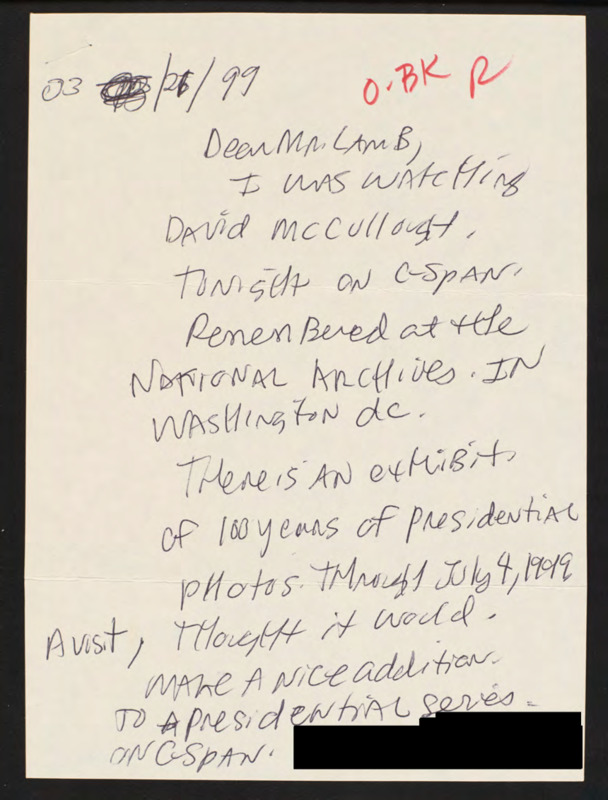 03 /26/99 O.BK R
Dear Mr. Lamb,
I was watching
David McCullought.
Tonight on C-Span.
Remembered at the
National Archives. In
Washington dc.
There is an exhibit
of 100 years of presidential
photos. Through July 4, 1999
A visit, Thought it would.
make A nice addition.
to A presidential series.
on C-Span.